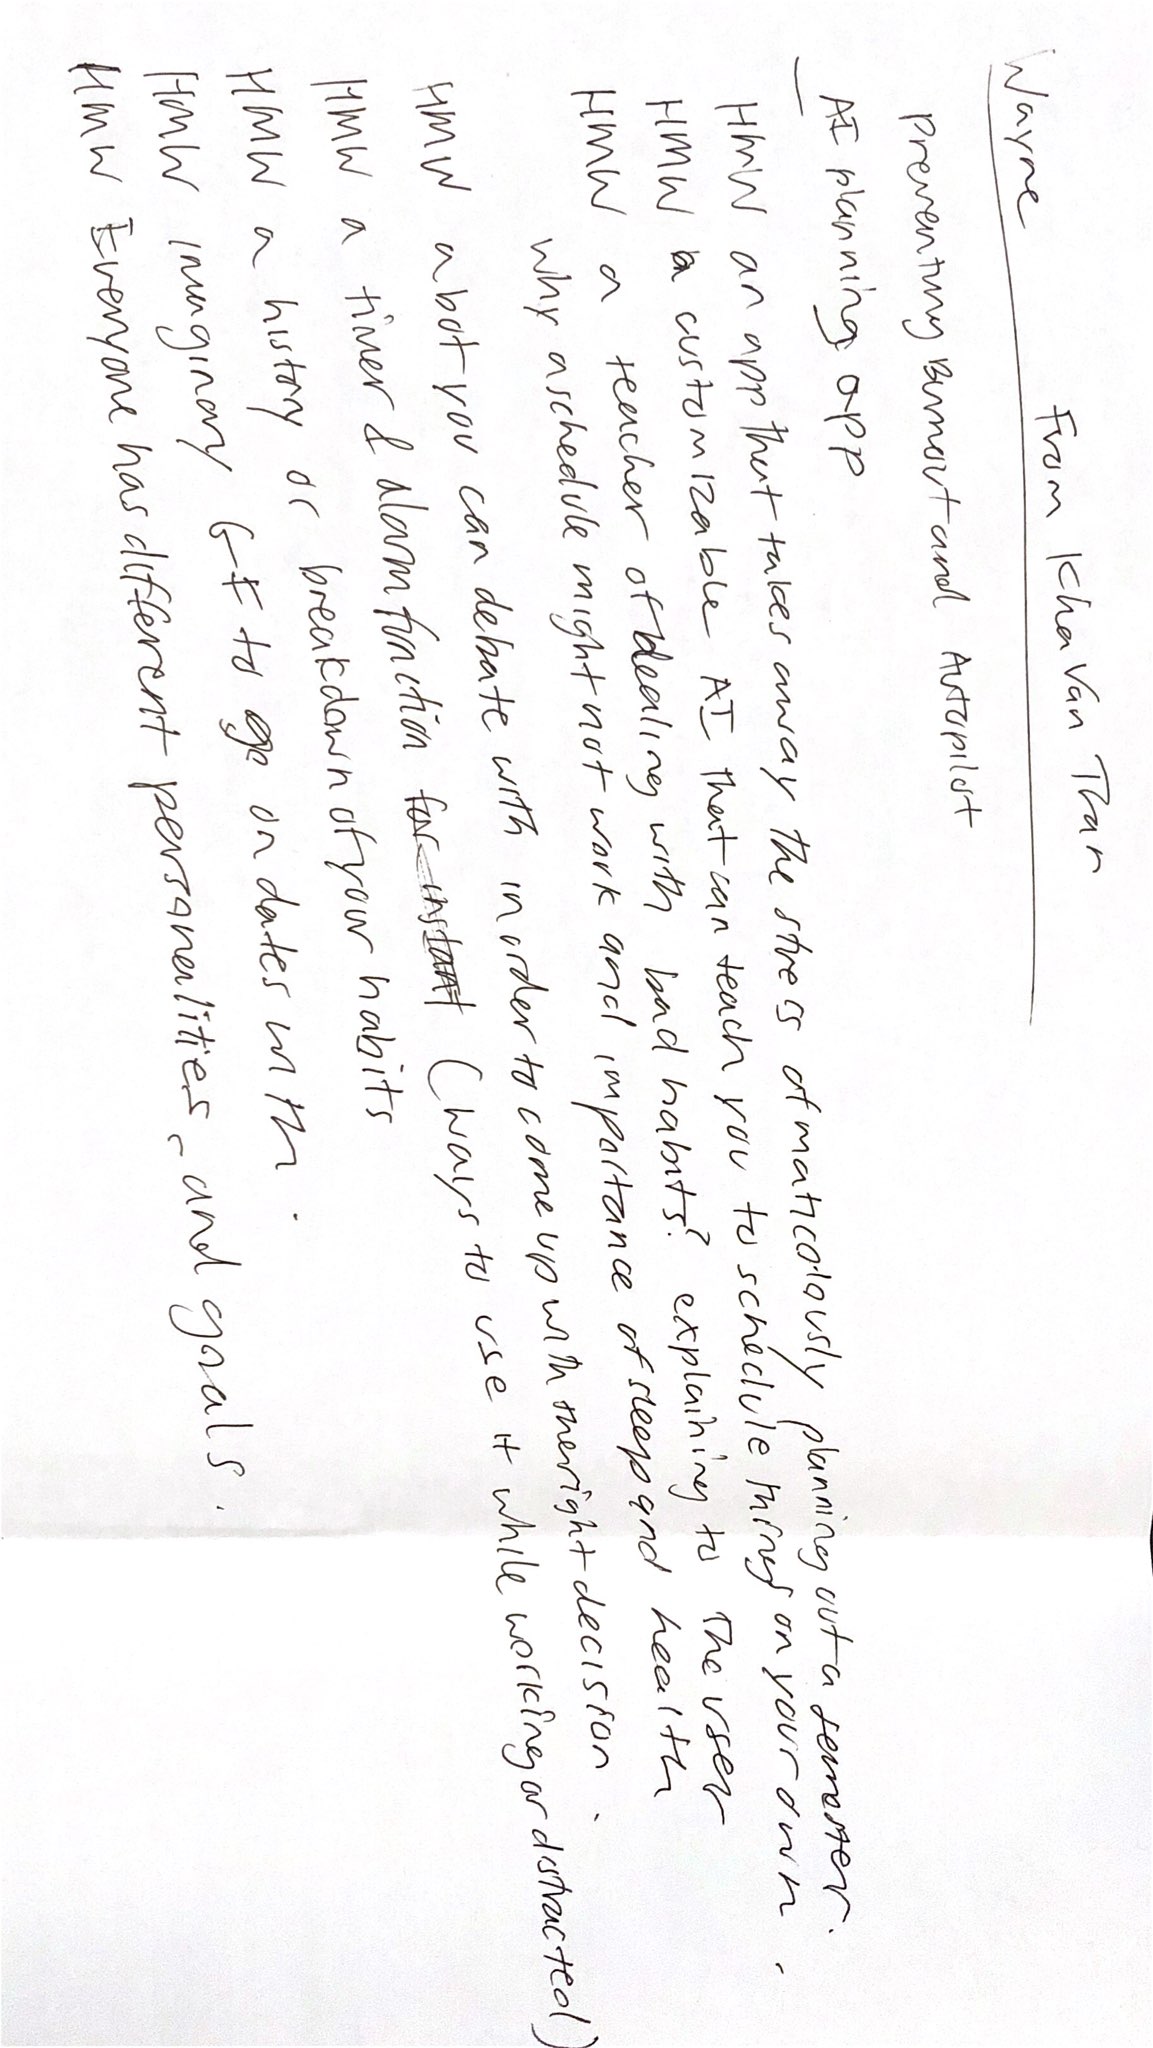 Wayne From Kha Van Tran
Preventing Burnout and Autopilot
AI planning app
HMW an app that takes away the stress of maticolously planning out a semester.
HMW a customizable AI that can teach you to schedule things on your own.
HMW a teacher of dealing with bad habits? explaining to the user
why a schedule might not work and importance of sleep and health
HMW a bot you can debate with in order to come up with the right decision.
HMW a timer & alarm function (ways to use it while working or distracted)
HMW a history or breakdown of your habits
HMW imaginary GF to go on dates with.
HMW Everyone has different personalities, and goals.